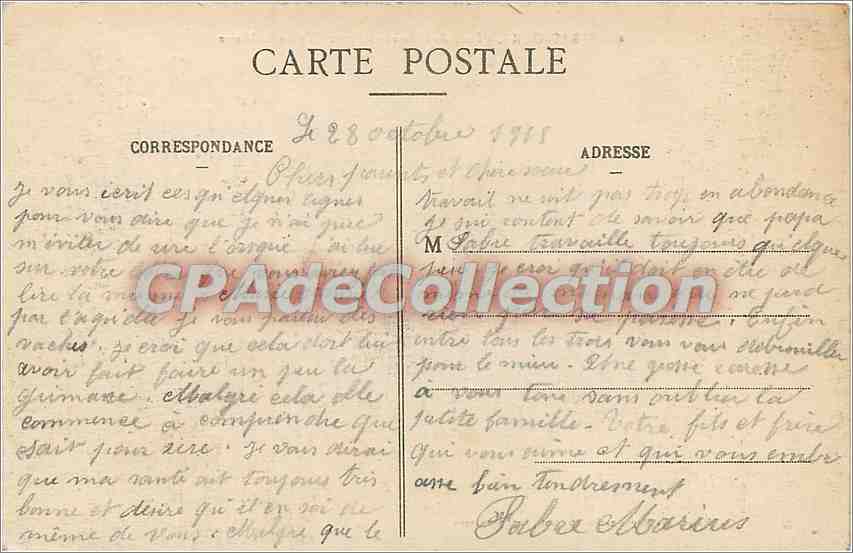 CARTE POSTALE
CORRESPONDANCE
ADRESSE
Le 28 octobre 1915
Chers parents et chère sœur
Je vous écrit ces qu'elques lignes
pour vous dire que je n'ai puc
m'éviter de rire l'orsque j'ai lue
sur votre
lire la
par laquelle je vous parlai des
vaches. je croi que cela dort lui
avoir fait faire un peu la
grimace. Malgré cela elle
commence à comprendre que
sait pour rire. Je vous dirai
que ma santé ait toujours tris
bonne et désire qu'il en soi de
même de vous. Malgré que le
travail ne soit pas trop en abondance
je sui content de savoir que papa
M Fabre travaille toujours quelques
peu je croi qu'il doit en être de
même ne perd
rien Enfin
entre tous les trois vous vous débrouiller
pour le mieu. Une grosse caresse
a vous tous sans oublier la
petite famille. Votre fils et frère
qui vous aime et qui vous embr
asse bien tendrement
Fabre Marius
CPAdeCollection